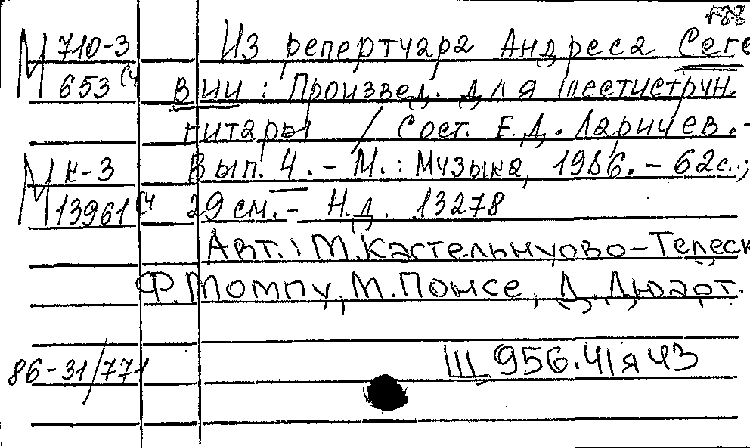 М 710-3 Из репертуара Андреса Сего
653 (ч вии : Произвед. для шестиструн.
гитары / Сост. Е.Д. Ларичев. -
М н-3 Вып. 4. - М. : Музыка, 1986. - 62 с.;
13961 (ч 29 см. - Н.д. 13278
Авт.: М.Кастельнуово-Тедеск
Ф.Момпу, М.Понсе, Д.Дюарт.
86-31/771 Ш 956.41я43